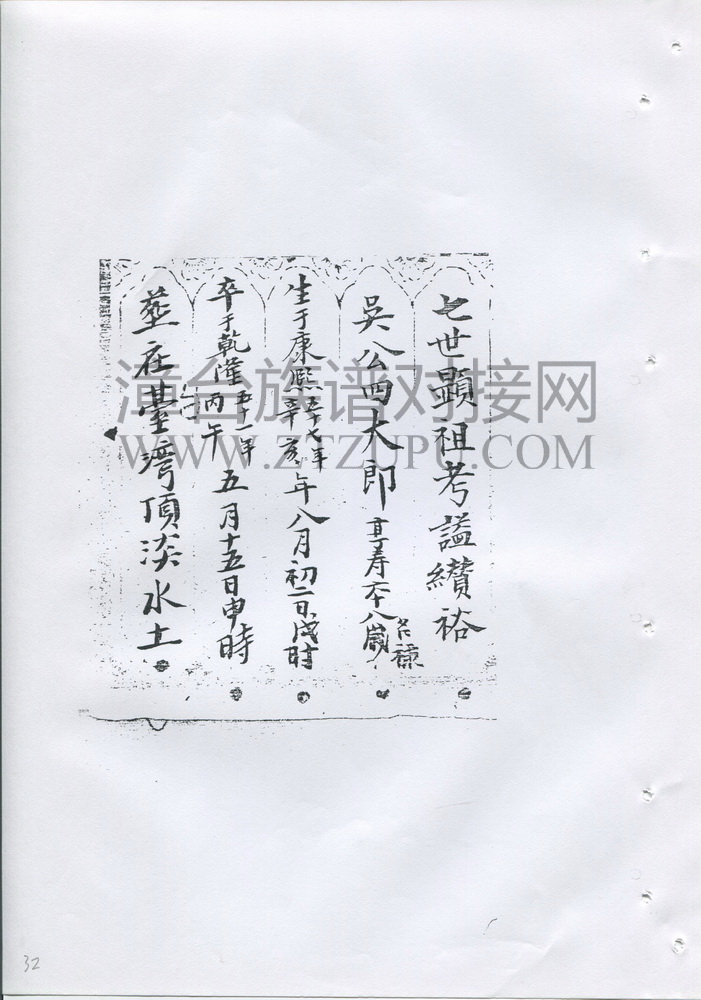 七世顯祖考謚纘裕
吳公四大郎 享寿六十八歲 名穂
生于康熙五十七年辛亥年八月初二日戌时
卒于乾隆五十一年丙午 五月十五日申時
塟在臺湾頂淡水土
台
漳台族谱对接网
WWW.ZTZUPU.COM
32